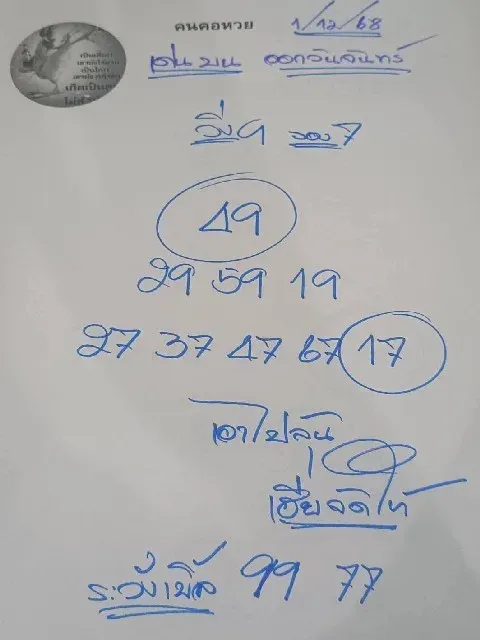 คนคอหวย 1/12/68
เด่นบน ออกวันจันทร์
วิ่ง 9 รอง 7
49
29 59 19
27 37 47 67 17
เอาไปลุ้น
เฮียจัดให้
ระวังเบิ้ล 99 77